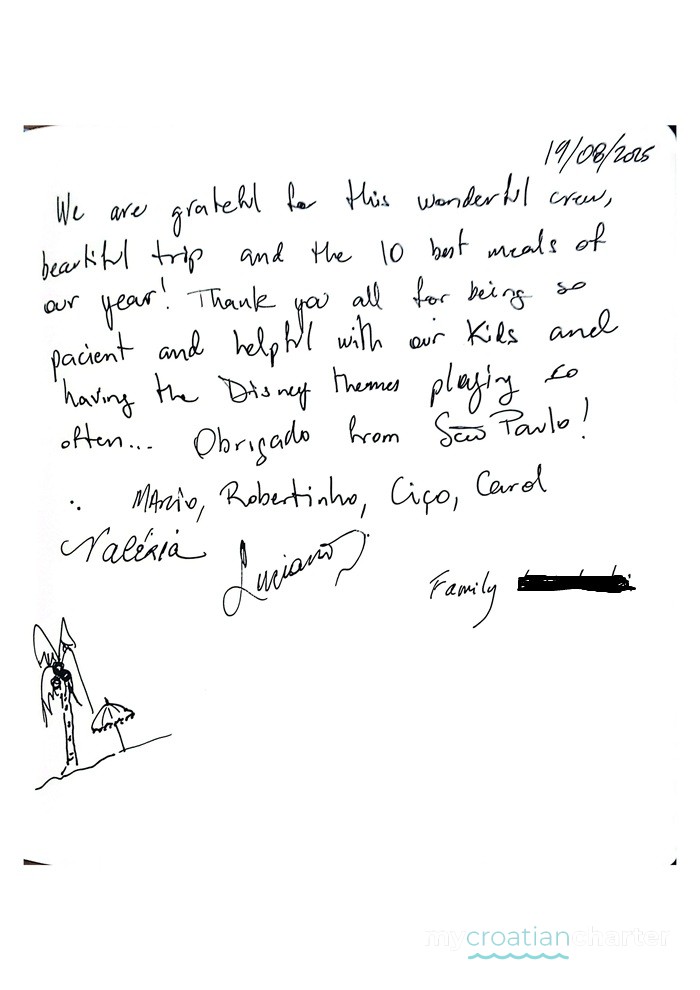 19/08/2025
We are grateful for this wonderful crew,
beautiful trip and the 10 best meals of
our year! Thank you all for being so
pacient and helpful with our Kids and
having the Disney themes playing so
often... Obrigado from São Paulo!
∴ Mario, Robertinho, Ciço, Carol
Valéria Luciano
Family
mycroatiancharter